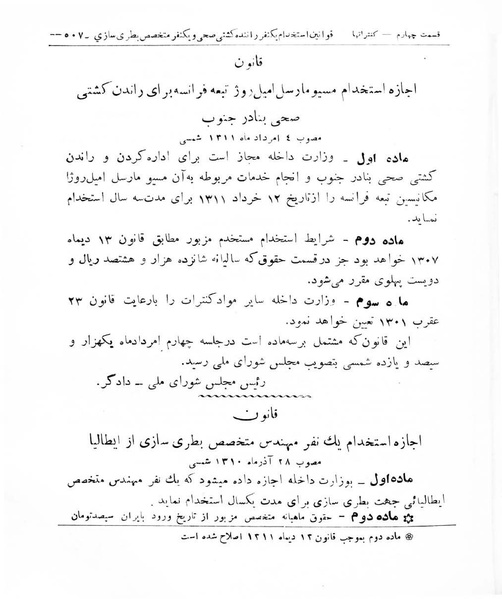 قسمت چهارم — کنتراتها قوانین استخدام یکنفر راننده کشتی صحی و یکنفر متخصص بطری سازی ـ۵۰۷—
قانون
اجازه استخدام مسیو مارسل امیل روژ تبعه فرانسه برای راندن کشتی
صحی بنادر جنوب
مصوب ٤ امرداد ماه ۱۳۱۱ شمسی
ماده اول ـ وزارت داخله مجاز است برای اداره کردن و راندن
کشتی صحی بنادر جنوب و انجام خدمات مربوطه به آن مسیو مارسل امیل روژا
مکانیسین تبعه فرانسه را از تاریخ ۱۲ خرداد ۱۳۱۱ برای مدت سه سال استخدام
نماید.
ماده دوم ـ شرایط استخدام مستخدم مزبور مطابق قانون ۱۳ دیماه
۱۳۰۷ خواهد بود جز در قسمت حقوق که سالیانه شانزده هزار و هشتصد ریال و
دویست پهلوی مقرر می‌شود.
ماده سوم ـ وزارت داخله سایر مواد کنترات را بارعایت قانون ۲۳
عقرب ۱۳۰۱ تعیین خواهد نمود.
این قانون که مشتمل بر سه ماده است در جلسه چهارم امرداد ماه یکهزار و
سیصد و یازده شمسی بتصویب مجلس شورای ملی رسید.
رئیس مجلس شورای ملی ـ دادگر.
قانون
اجازه استخدام یك نفر مهندس متخصص بطری سازی از ایطالیا
مصوب ۲۸ آذر ماه ۱۳۱۰ شمسی
ماده اول ـ بوزارت داخله اجازه داده میشود که یك نفر مهندس متخصص
ایطالیائی جهت بطری سازی برای مدت یکسال استخدام نماید
✻ ماده دوم ـ حقوق ماهیانه متخصص مزبور از تاریخ ورود بایران سیصدتومان
✻ ماده دوم بموجب قانون ۱۲ دیماه ۱۳۱۱ اصلاح شده است